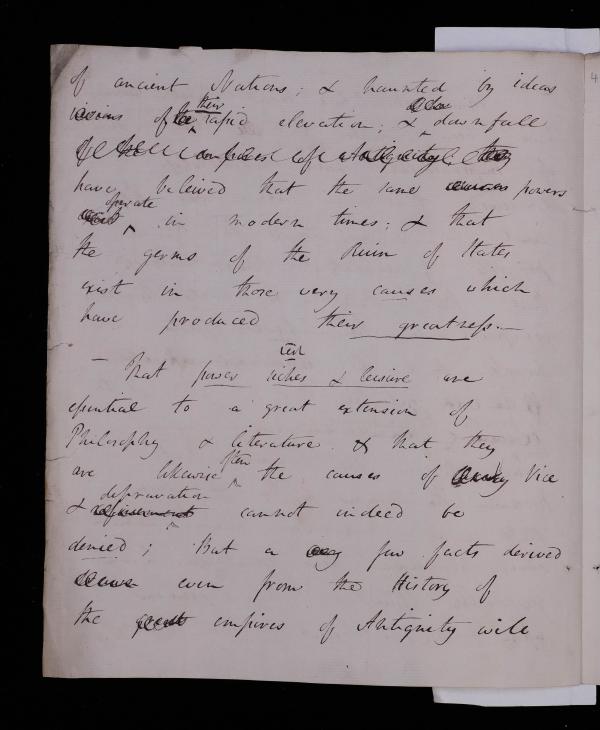 of ancient Nations; & haunted by ideas
of their rapid elevation; & downfall
of the empires of Antiquity; they
have beleived that the same powers
operate in modern times; & that
the germs of the Ruin of States
exist in those very causes which
have produced their greatness.—
— That power riches & leisure are
essential to a great extension of
Philosophy & literature & that they
are likewise often the causes of Vice
& depravation cannot indeed be
denied; But a few facts derived
even from the History of
the great empires of Antiquity will
4